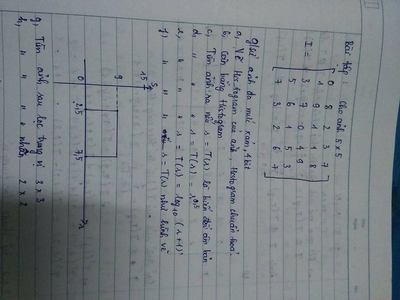 Bài tập : Cho ảnh 5 x 5
I =
0 8 2 3 7
1 9 1 1 8
3 7 0 4 9
5 6 1 5 3
7 3 2 6 7
ảnh đa mức xám, 4 bit
a, Vẽ Histogram của ảnh Histogram chuẩn hoá.
b, Cân bằng Histogram
c, Tìm ảnh ra nếu s = T(r) là biến đổi âm bản
d, " " " s = T(r) = r^0,5
e, " " " s = T(r) = log10 (r+1)
f, " " " s = T(r) như hình vẽ
15 s
9
0 2,5 7,5 r
g, Tìm ảnh sau lọc trung vị 3 x 3
h, " " " " 2 x 2